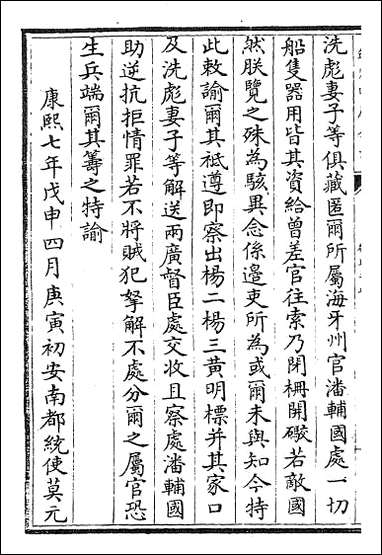 洗彪妻子等俱藏匿爾所屬海牙州官潘輔國處一切
船隻器用皆其資給曾差官往索乃閉柵開礮若敵國
然朕覽之殊為駭異念係邊吏所為或爾未與知今特
此敕諭爾其祗遵即察出楊二楊三黃明標并其家口
及洗彪妻子等解送兩廣督臣處交收且察處潘輔國
助逆抗拒情罪若不將賊犯拏解不處分爾之屬官恐
生兵端爾其籌之特諭
康熙七年戊申四月庚寅初安南都統使莫元